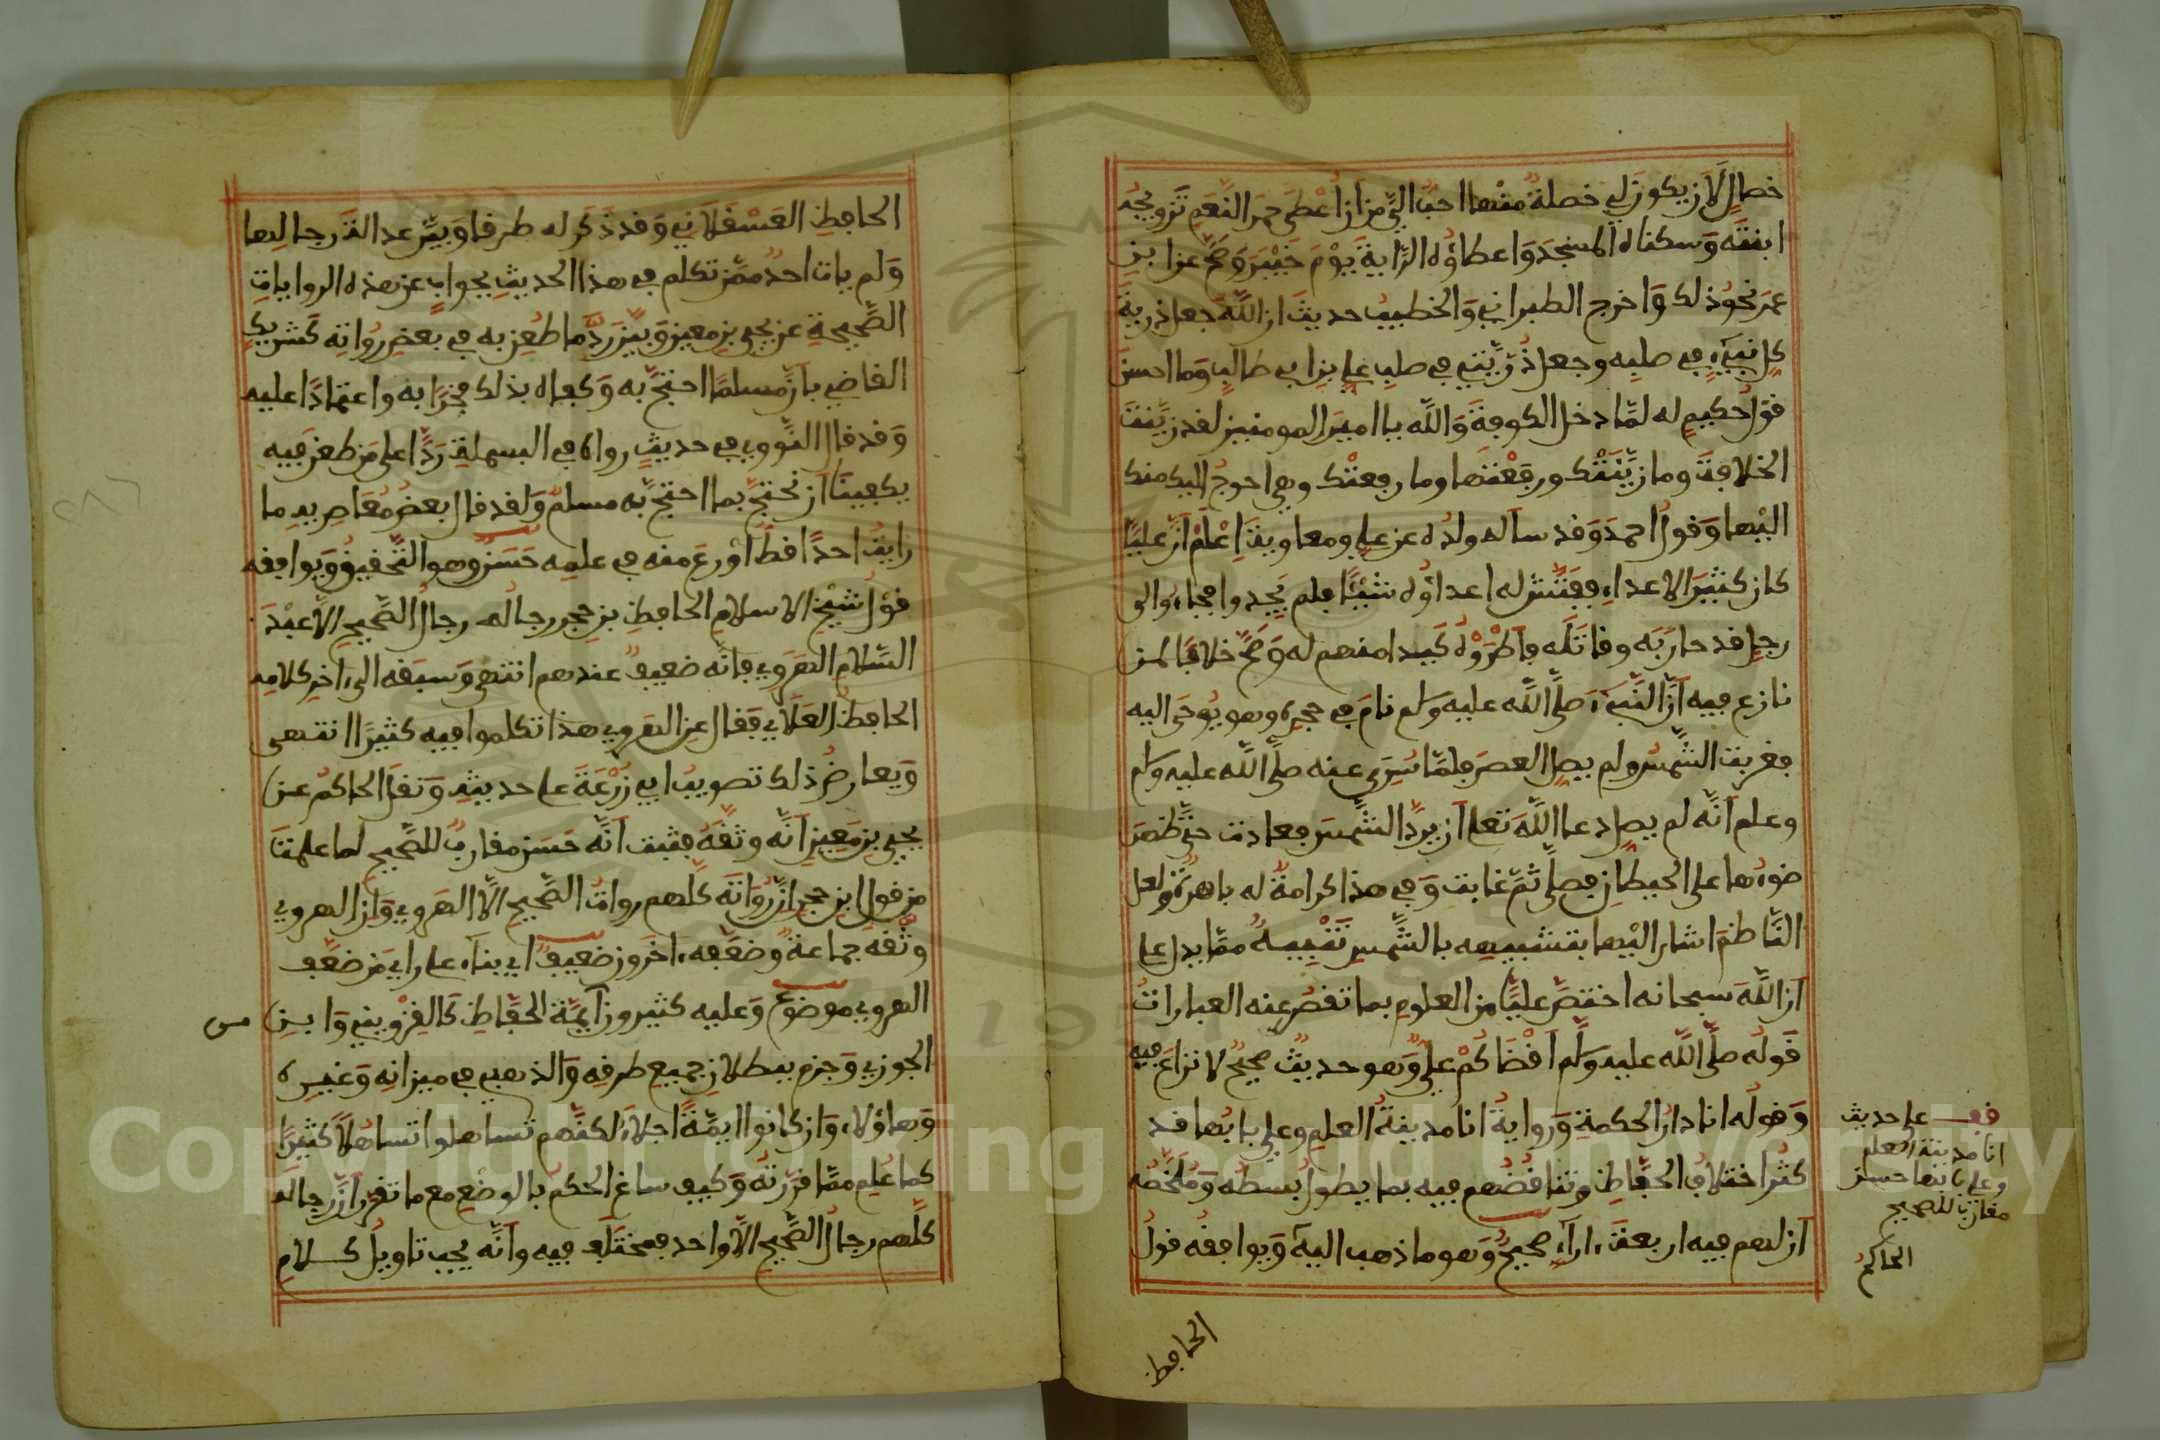 خصال لان يكون لي خصلة منها احب الي من ان اعطى حمر النعم تزويجه
ابنته وسكناه المسجد واعطاؤه الراية يوم خيبر وصح عن ابن
عمر نحو ذلك واخرج الطبراني والخطيب حديث ان الله جعل ذرية
كل نبيء في صلبه وجعل ذريتي في صلب علي بن ابي طالب وما احسن
قول حكيم له لما دخل الكوفة والله يا امير المومنين لقد زينت
الخلافة وما زينتك ورفعتها وما رفعتك وهي احوج اليك منك
اليها وقول احمد وقد ساله ولده عن علي ومعاوية اعلم ان عليا
كان كثير الاعداء ففتش له اعداؤه شيئا فلم يجدوا فجاءوا الى
رجل قد حاربه وقاتله فاطروه كيدا منهم له وصح خلافا لمن
نازع فيه ان النبيء صلى الله عليه وسلم نام في حجره وهو يوحى اليه
فغربت الشمس ولم يصل العصر فلما سري عنه صلى الله عليه وسلم
وعلم انه لم يصل دعا الله تعلى ان يرد الشمس فعادت حتى ظهر
ضوءها على الحيطان فصلى ثم غابت وفي هذا كرامة له باهرة ولعل
الناظم اشار اليها بتشبيهه بالشمس تنبيه مما يدل على
ان الله سبحانه اختص عليا من العلوم بما تقصر عنه العبارات
قوله صلى الله عليه وسلم اقضاكم علي وهو حديث صحيح لا نزاع فيه
وقوله انا دار الحكمة ورواية انا مدينة العلم وعلي بابها قد
كثر اختلاف الحفاظ وتناقضهم فيه بما يطول بسطه وملخصه
ان لهم فيه اربعة ءاراء صحيح وهو ما ذهب اليه ويوافقه قول
قف على حديث
انا مدينة العلم
وعلي بابها حسن
مقارب للصحيح
الحاكم
الحافظ
الحافظ العسقلاني وقد ذكر له طرقا وبين عدالة رجالها
ولم يات احد ممن تكلم في هذا الحديث بجواب عن هذه الروايات
الصحيحة عن يحيى بن معين وبين رد ما طعن به في بعض رواته كشريك
القاضي بان مسلما احتج به وكفاه بذلك فخرا به واعتمادا عليه
وقد قال النووي في حديث رواه في البسملة ردا على من طعن فيه
يكفينا ان نحتج بما احتج به مسلم ولقد قال بعض معاصريه ما
رايت احدا قط اورع منه في علمه حسن وهو التحقيق ويوافقه
قول شيخ الاسلام الحافظ بن حجر رجاله رجال الصحيح الا عبد
السلام الهروي فانه ضعيف عندهم انتهى وسبقه الى ءاخر كلامه
الحافظ العلائي فقال عن الهروي هذا تكلموا فيه كثيرا انتهى
ويعارض ذلك تصويب ابي زرعة على حديثه ونقل الحاكم عن
يحيى بن معين انه وثقه فثبت انه حسن مقارب للصحيح لما علمت
من قول ابن حجر ان رواته كلهم رواة الصحيح الا الهروي وان الهروي
وثقه جماعة وضعفه ءاخرون ضعيف اي بناء على راي من ضعف
الهروي موضوع وعليه كثيرون ايمة الحفاظ كالقزويني وابن
الجوزي وجزم ببطلان جميع طرقه والذهبي في ميزانه وغيره
وهاؤلاء وان كانوا ايمة اجلاء لكنهم تساهلوا تساهلا كثيرا
كما علم مما قررته وكيف ساغ الحكم بالوضع مع ما تقرر ان رجاله
كلهم رجال الصحيح الا واحد فمختلف فيه وانه يجب تاويل كلام
Copyright © King Saud University
1957